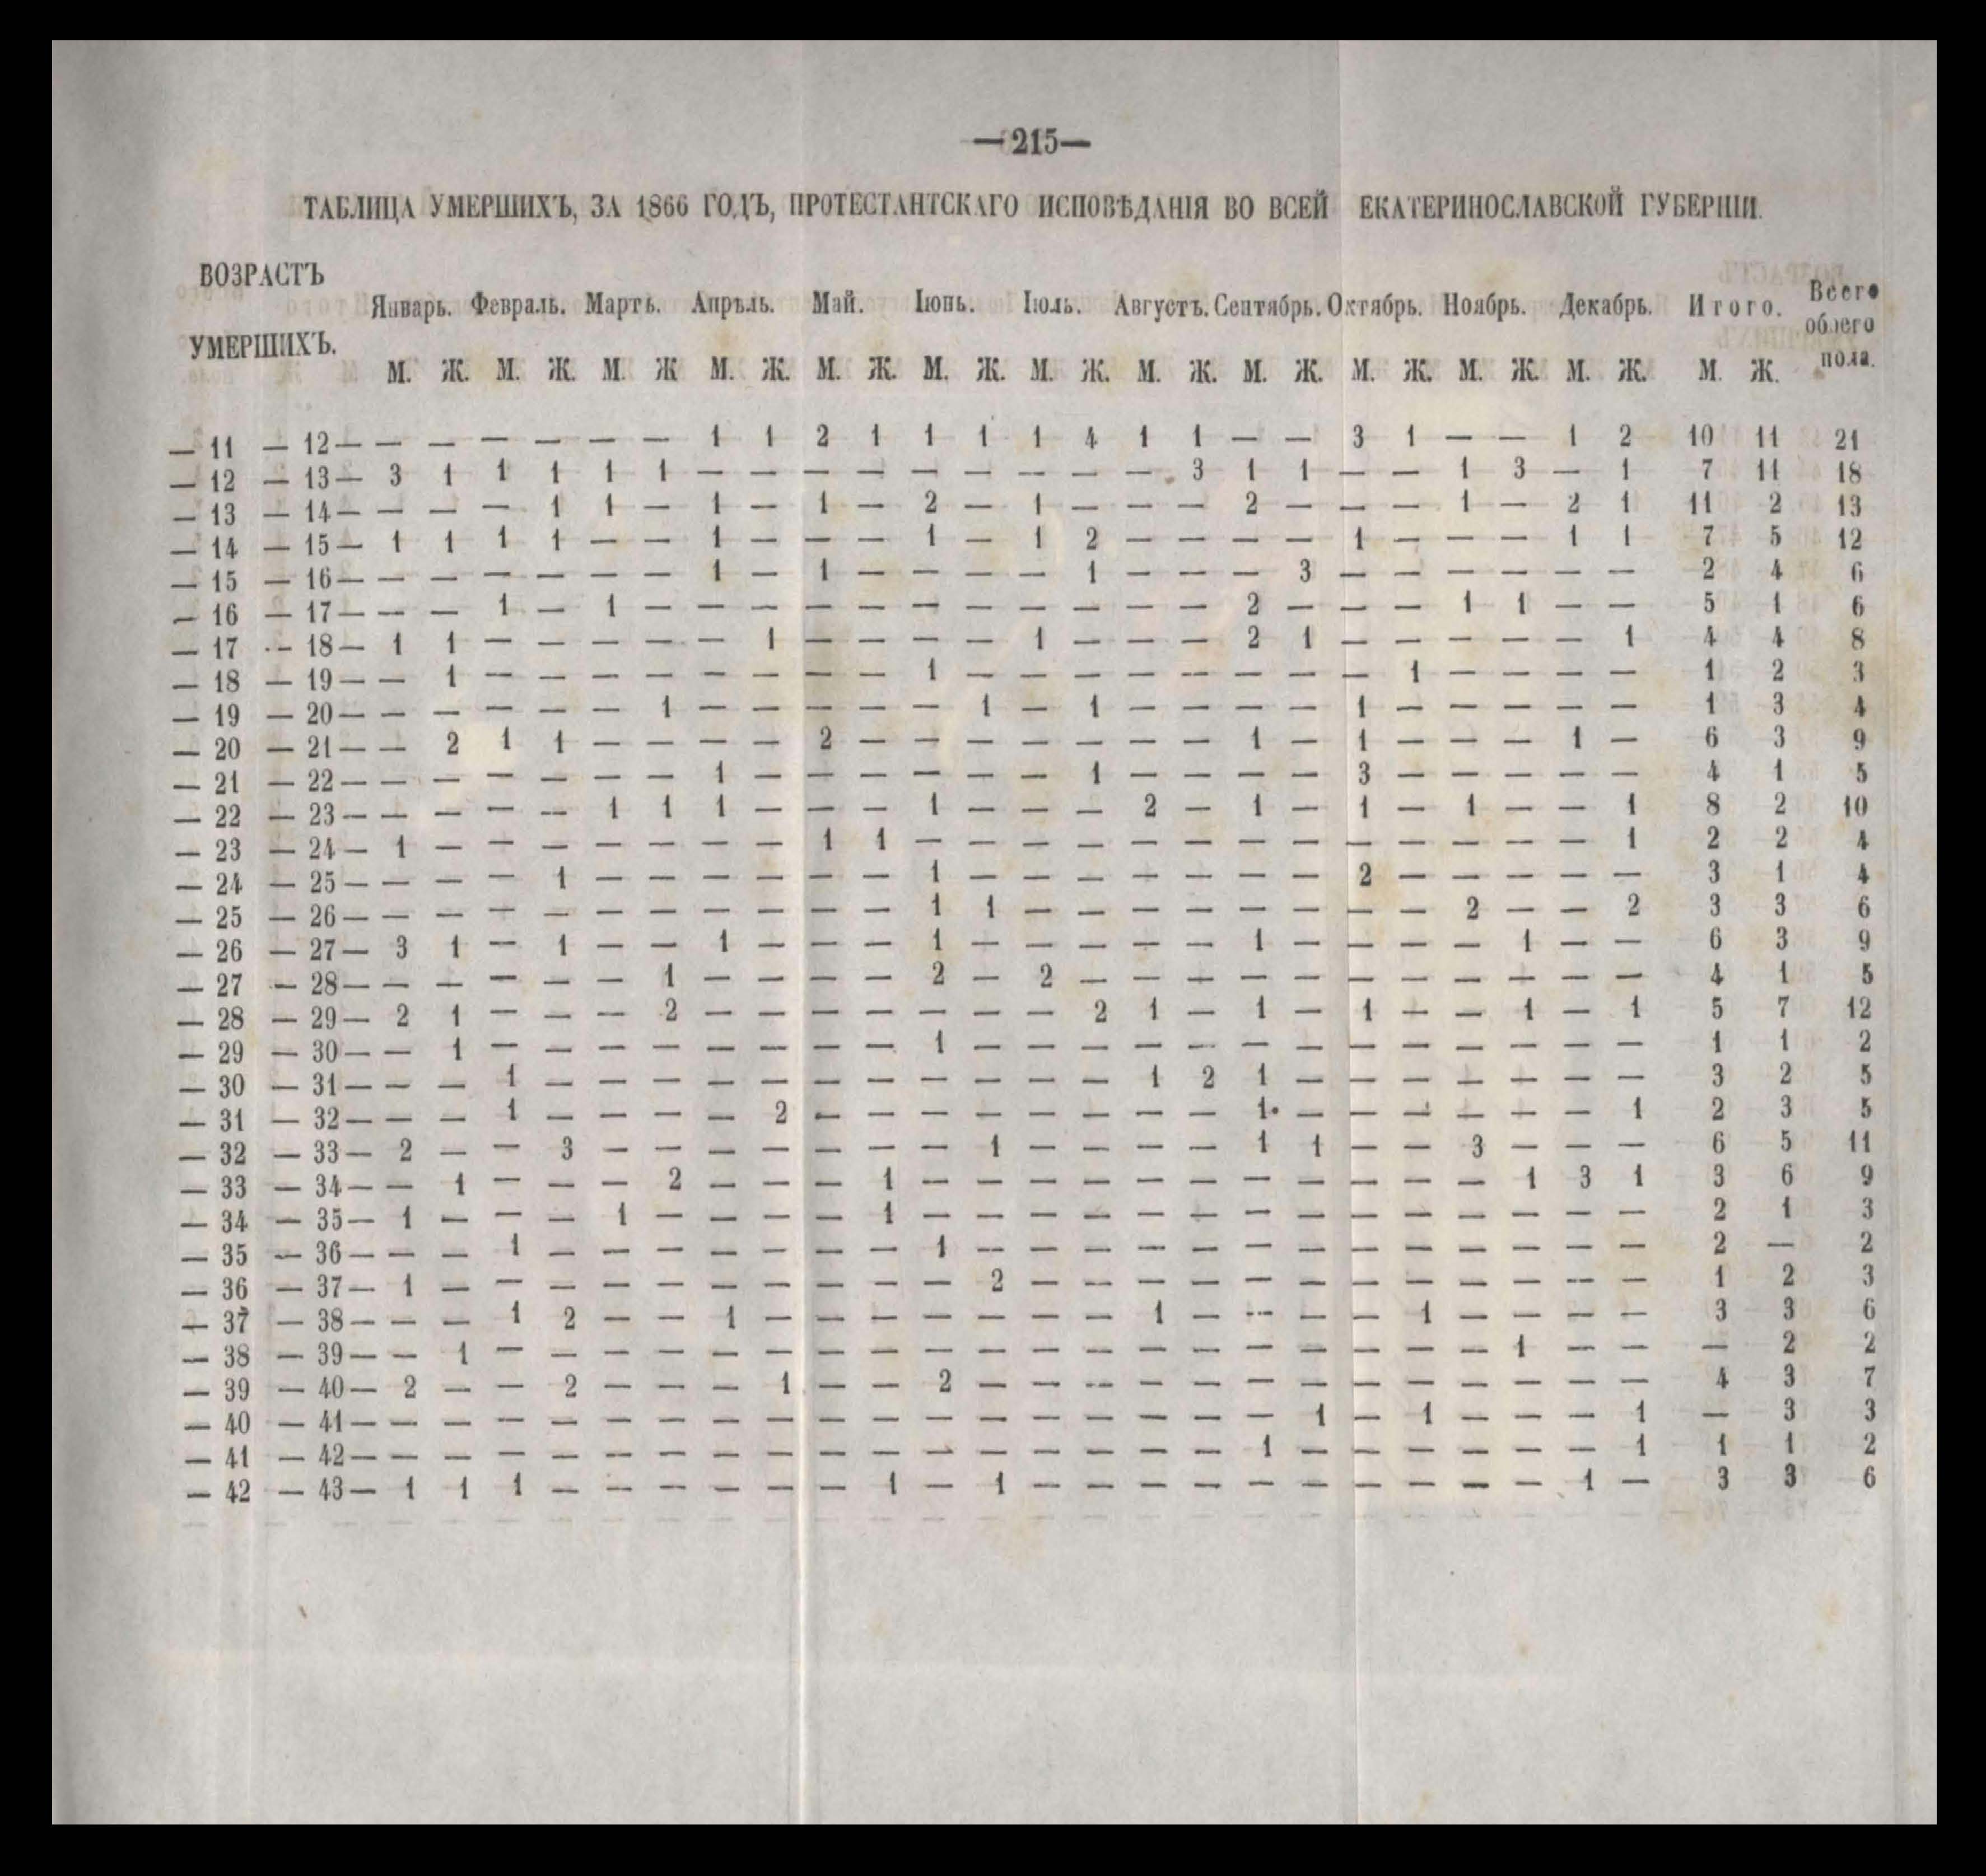 — 215 —
ТАБЛИЦА УМЕРШИХЪ, ЗА 1866 ГОДЪ, ПРОТЕСТАНТСКАГО ИСПОВѢДАНІЯ ВО ВСЕЙ ЕКАТЕРИНОСЛАВСКОЙ ГУБЕРНІИ.
ВОЗРАСТЪ УМЕРШИХЪ.
Январь. Февраль. Мартъ. Апрѣль. Май. Іюнь. Іюль. Августъ. Сентябрь. Октябрь. Ноябрь. Декабрь. Итого. Всего обоего пола.
М. Ж. М. Ж. М. Ж М. Ж. М. Ж. М. Ж. М. Ж. М. Ж. М. Ж. М. Ж. М. Ж. М. Ж. М. Ж.
— 11 — 12 — — — — — — — 1 1 2 1 1 1 1 4 1 1 — — 3 1 — — 1 2 10 11 21
— 12 — 13 — 3 1 1 1 1 1 — — — — — — — — — 3 1 1 — — 1 3 — 1 7 11 18
— 13 — 14 — — — — 1 1 — 1 — 1 — 2 — 1 — — — 2 — — — 1 — 2 1 11 2 13
— 14 — 15 — 1 1 1 1 — — 1 — — — 1 — 1 2 — — — — 1 — — — 1 1 7 5 12
— 15 — 16 — — — — — — — 1 — 1 — — — — 1 — — — 3 — — — — — — 2 4 6
— 16 — 17 — — — 1 — 1 — — — — — — — — — — — 2 — — — 1 1 — — 5 1 6
— 17 — 18 — 1 1 — — — — — 1 — — — — 1 — — — 2 1 — — — — — 1 4 4 8
— 18 — 19 — — 1 — — — — — — — — 1 — — — — — — — — 1 — — — — 1 2 3
— 19 — 20 — — — — — — 1 — — — — — 1 — 1 — — — — 1 — — — — — 1 3 4
— 20 — 21 — — 2 1 1 — — — — 2 — — — — — — — 1 — 1 — — — 1 — 6 3 9
— 21 — 22 — — — — — — — 1 — — — — — — 1 — — — — 3 — — — — — 4 1 5
— 22 — 23 — — — — — 1 1 1 — — — 1 — — — 2 — 1 — 1 — 1 — — 1 8 2 10
— 23 — 24 — 1 — — — — — — — 1 1 — — — — — — — — — — — — — 1 2 2 4
— 24 — 25 — — — — 1 — — — — — — 1 — — — — — — — 2 — — — — — 3 1 4
— 25 — 26 — — — — — — — — — — — 1 1 — — — — — — — — 2 — — 2 3 3 6
— 26 — 27 — 3 1 — 1 — — 1 — — — 1 — — — — — 1 — — — — 1 — — 6 3 9
— 27 — 28 — — — — — — 1 — — — — 2 — 2 — — — — — — — — — — — 4 1 5
— 28 — 29 — 2 1 — — — 2 — — — — — — — 2 1 — 1 — 1 — — 1 — 1 5 7 12
— 29 — 30 — — 1 — — — — — — — — 1 — — — — — — — — — — — — — 1 1 2
— 30 — 31 — — — 1 — — — — — — — — — — — 1 2 1 — — — — — — — 3 2 5
— 31 — 32 — — — 1 — — — — 2 — — — — — — — — 1 — — — — — — 1 2 3 5
— 32 — 33 — 2 — — 3 — — — — — — — 1 — — — — 1 1 — — 3 — — — 6 5 11
— 33 — 34 — — 1 — — — 2 — — — 1 — — — — — — — — — — — 1 3 1 3 6 9
— 34 — 35 — 1 — — — 1 — — — — 1 — — — — — — — — — — — — — — 2 1 3
— 35 — 36 — — — 1 — — — — — — — 1 — — — — — — — — — — — — — 2 — 2
— 36 — 37 — 1 — — — — — — — — — — 2 — — — — — — — — — — — — 1 2 3
— 37 — 38 — — — 1 2 — — 1 — — — — — — — 1 — — — — 1 — — — — 3 3 6
— 38 — 39 — — 1 — — — — — — — — — — — — — — — — — — — 1 — — — 2 2
— 39 — 40 — 2 — — 2 — — — 1 — — 2 — — — — — — — — — — — — — 4 3 7
— 40 — 41 — — — — — — — — — — — — — — — — — — 1 — 1 — — — 1 — 3 3
— 41 — 42 — — — — — — — — — — — — — — — — — 1 — — — — — — 1 1 1 2
— 42 — 43 — 1 1 1 — — — — — — 1 — 1 — — — — — — — — — — 1 — 3 3 6